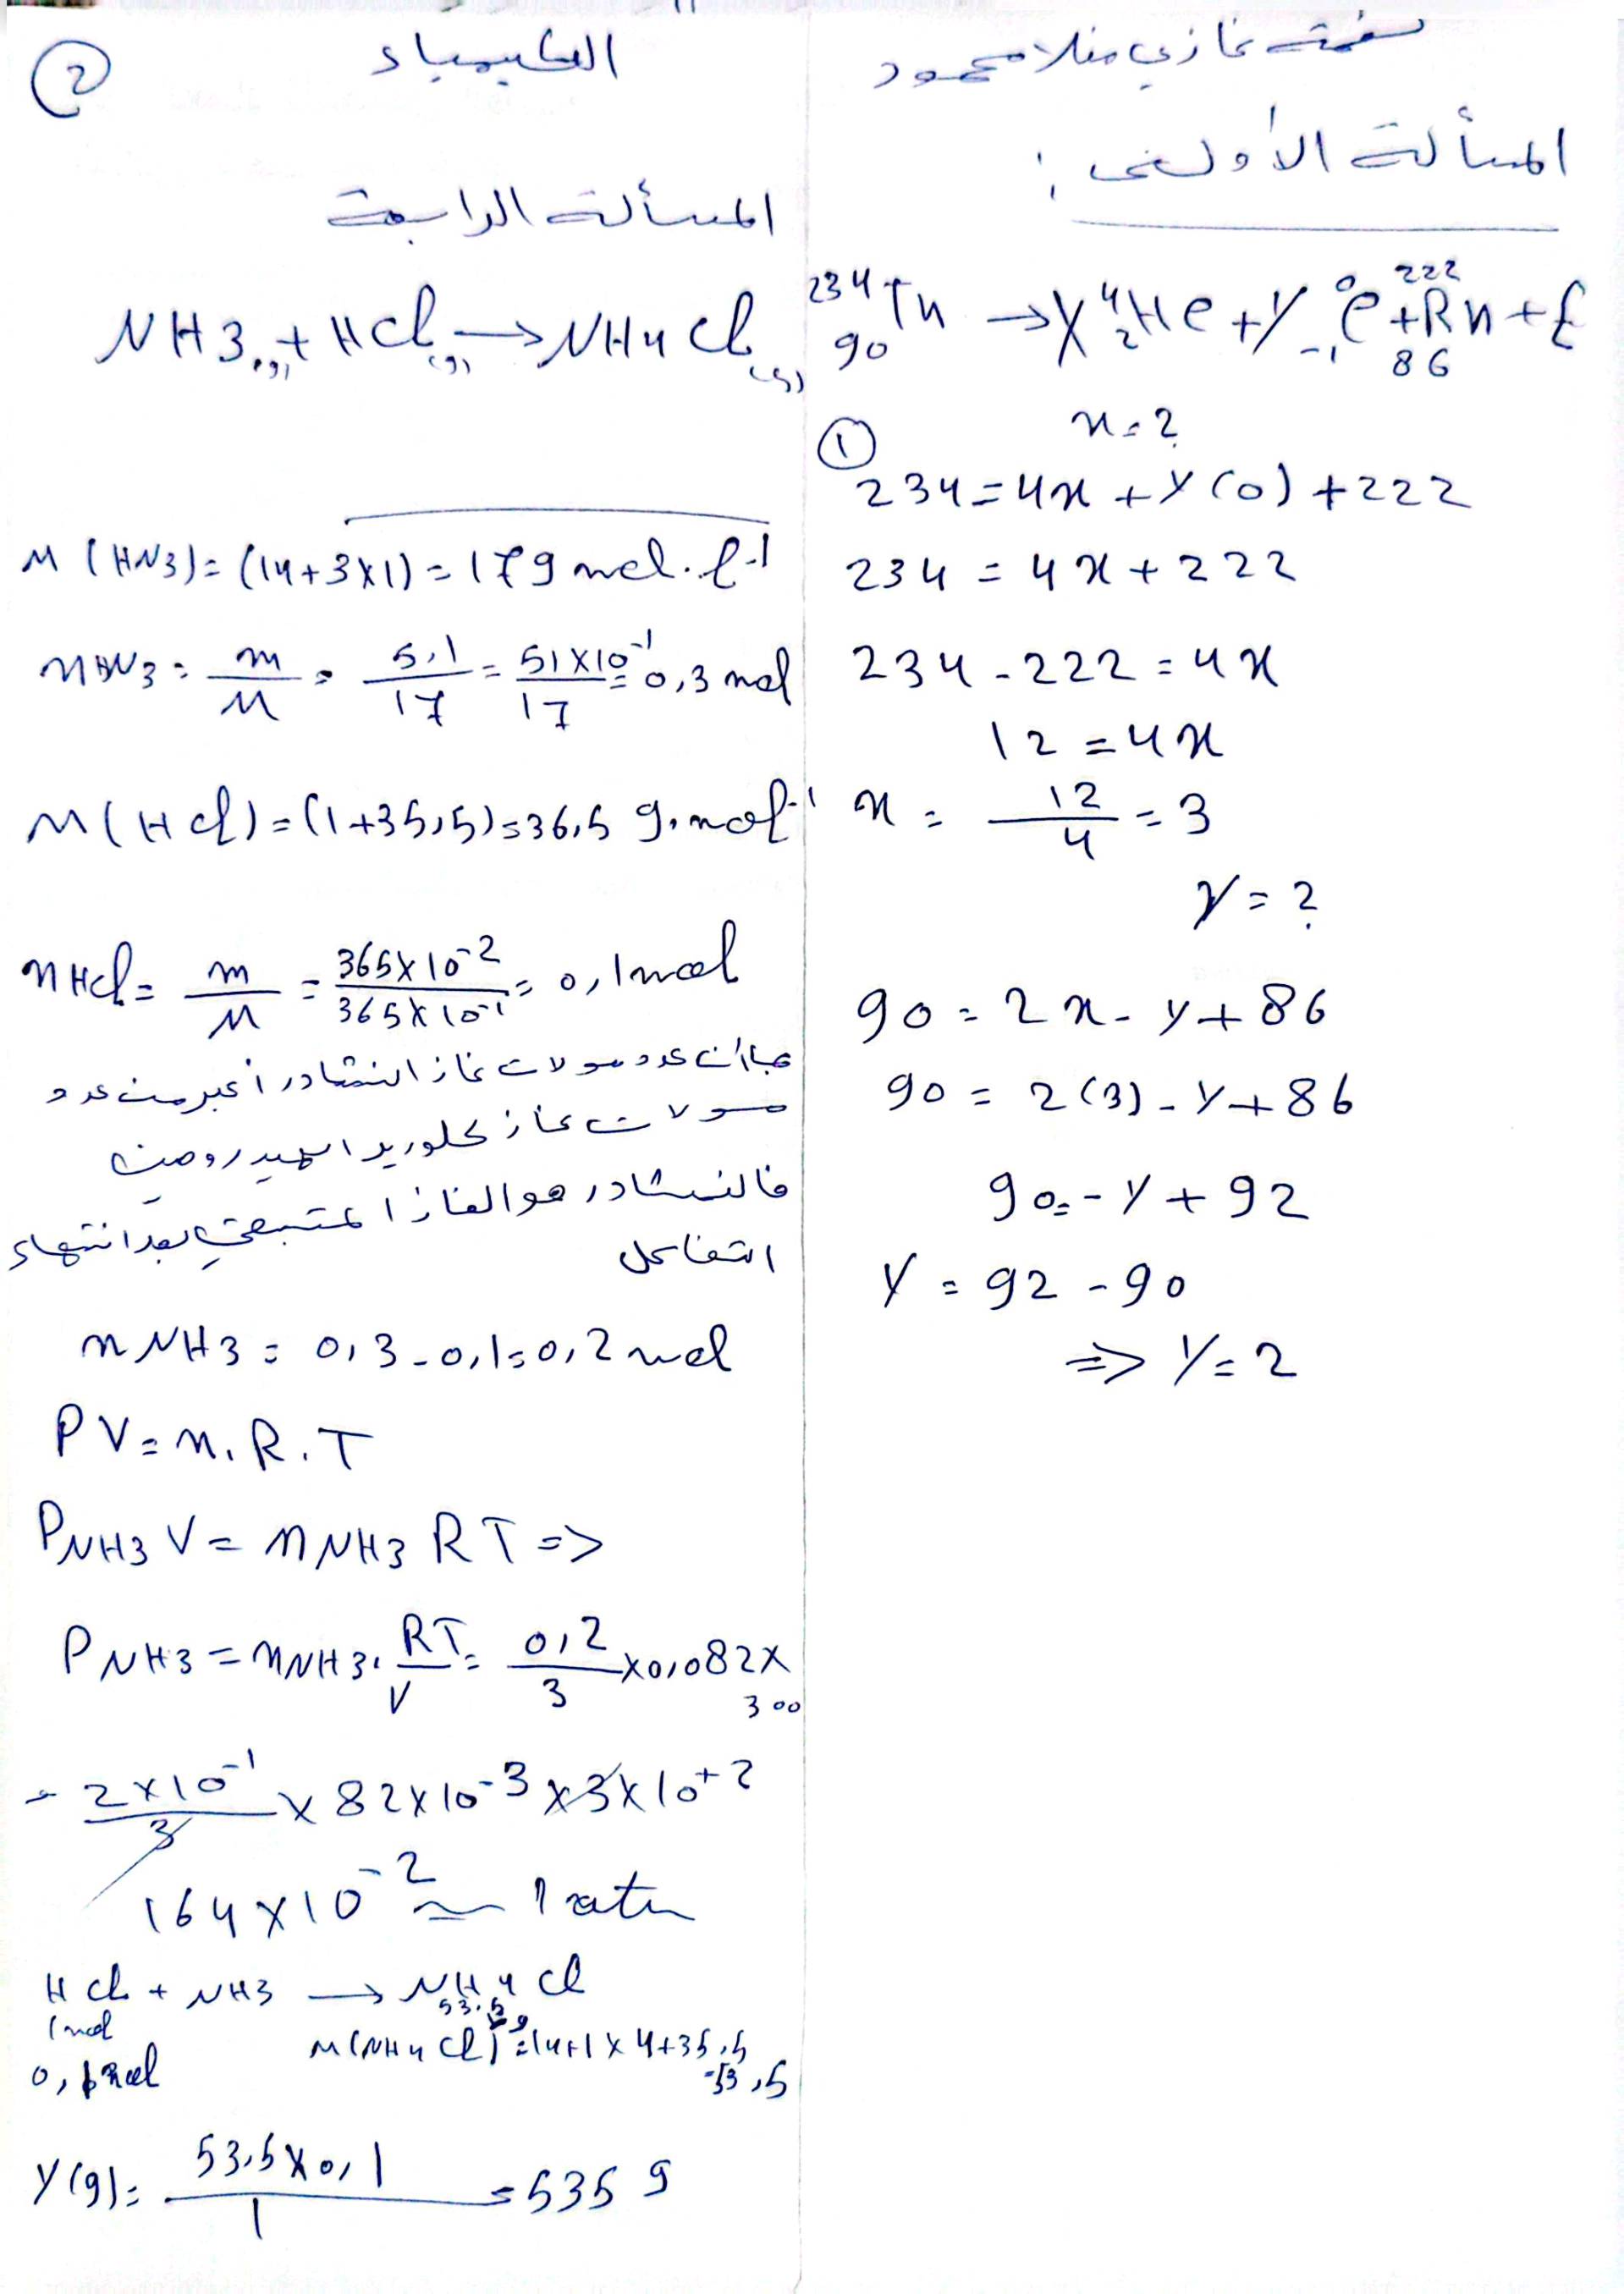 الكيمياء
نعمت غازي منلا محمود
2
المسألة الأولى :
²³⁴₉₀Th → X ⁴₂He + Y ⁰₋₁e + ²²²₈₆Rn + E
x = ?
①
234 = 4x + y (0) + 222
234 = 4x + 222
234 - 222 = 4x
12 = 4x
x = 12/4 = 3
y = ?
90 = 2x - y + 86
90 = 2(3) - y + 86
90 = - y + 92
y = 92 - 90
=> y = 2
المسألة الرابعة
NH3(g) + HCl(g) → NH4Cl(s)
M (HN3) = (14+3x1) = 17g mol.l-1
nHN3 = m/M = 5,1/17 = 51x10⁻¹/17 = 0,3 mol
M(HCl) = (1+35,5) = 36,5 g.mol⁻¹
nHCl = m/M = 365x10⁻²/365x10⁻¹ = 0,1mol
بما أن عدد مولات غاز النشادر أكبر من عدد
مولات غاز كلوريد الهيدروجين
فالنشادر هو الغاز المتبقي بعد انتهاء
التفاعل
nNH3 = 0,3-0,1=0,2 mol
PV = n.R.T
PNH3 V = nNH3 RT =>
PNH3 = nNH3. RT/V = 0,2/3 x0,082x
300
= 2x10⁻¹/3 x 82x10⁻³ x3x10⁺²
164x10⁻² ≈ 1 atm
HCl + NH3 → NH4Cl
1mol 53.5 g
M(NH4Cl) = 14+1x4+35,5
0,1mol =53,5
Y(g) = 53,5x0,1/1 = 535 g